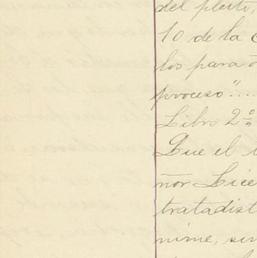 del pleito,
10 de la
los para
proceso"...
Libro 2º
Que el
ñor Lice
tratadist
nime, sin